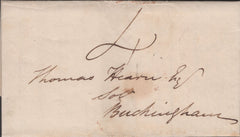 4
Thomas Hearn Esqr
Solr
Buckingham